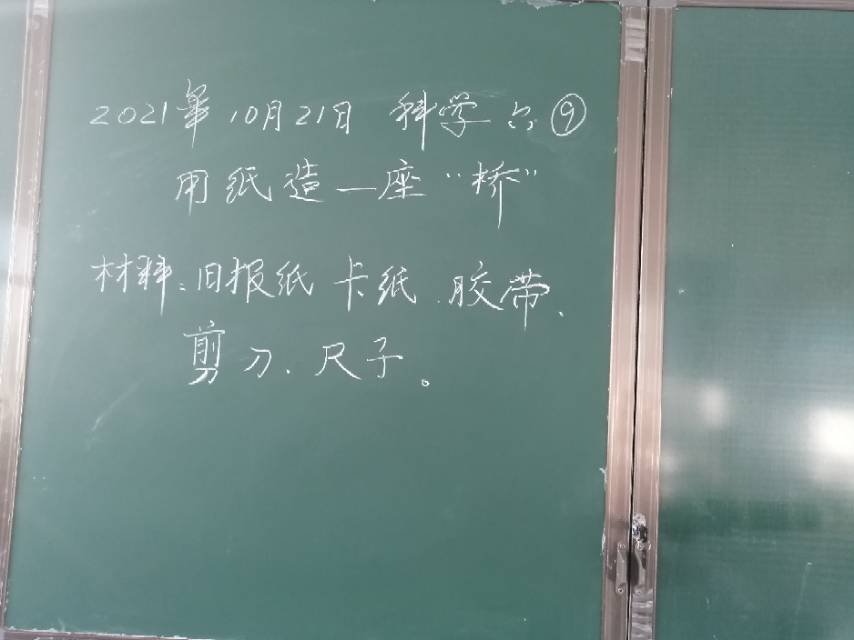 2021年10月21日 科学 六⑨
用纸造一座“桥”
材料:旧报纸 卡纸、胶带、
剪刀、尺子。